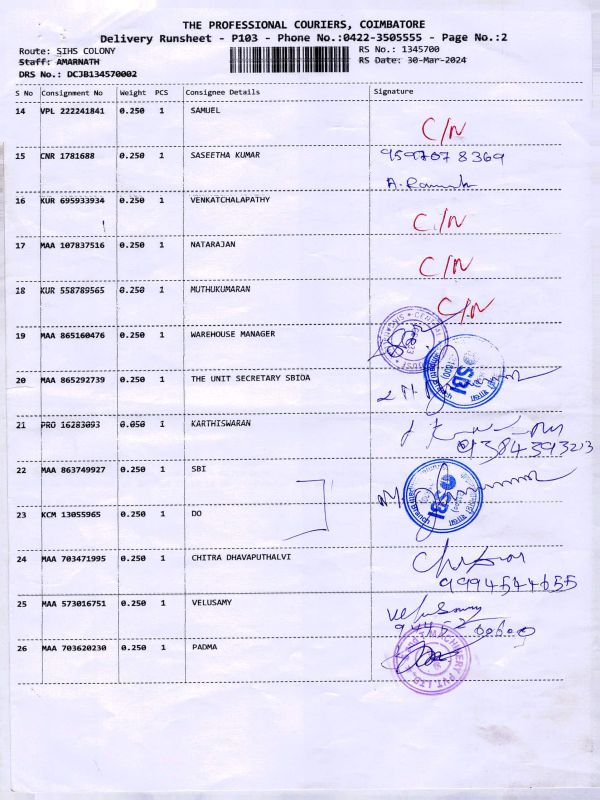 THE PROFESSIONAL COURIERS, COIMBATORE
Delivery Runsheet - P103 - Phone No.:0422-3505555 - Page No.:2
Route: SIHS COLONY
RS No.: 1345700
Staff: AMARNATH
RS Date: 30-Mar-2024
DRS No.: DCJB134570002
S No Consignment No Weight PCS Consignee Details Signature
14 VPL 222241841 0.250 1 SAMUEL
C/N
15 CNR 1781688 0.250 1 SASEETHA KUMAR 9597078369
16 KUR 695933934 0.250 1 VENKATCHALAPATHY
C/N
17 MAA 107837516 0.250 1 NATARAJAN
C/N
18 KUR 558789565 0.250 1 MUTHUKUMARAN
C/N
19 MAA 865160476 0.250 1 WAREHOUSE MANAGER
20 MAA 865292739 0.250 1 THE UNIT SECRETARY SBIOA
SBI
21 PRO 16283093 0.050 1 KARTHISWARAN
22 MAA 863749927 0.250 1 SBI
SBI
23 KCM 13055965 0.250 1 DO
24 MAA 703471995 0.250 1 CHITRA DHAVAPUTHALVI
9994544655
25 MAA 573016751 0.250 1 VELUSAMY
Velusamy
26 MAA 703620230 0.250 1 PADMA